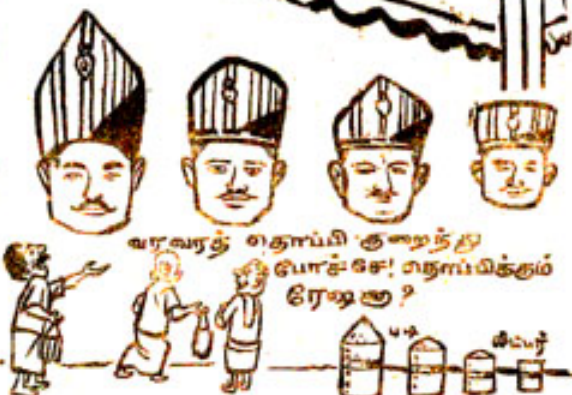 வரவரத் தொப்பி குறைந்து
போச்சே! தொப்பிக்கும்
ரேஷனா?
படி
லிட்டர்